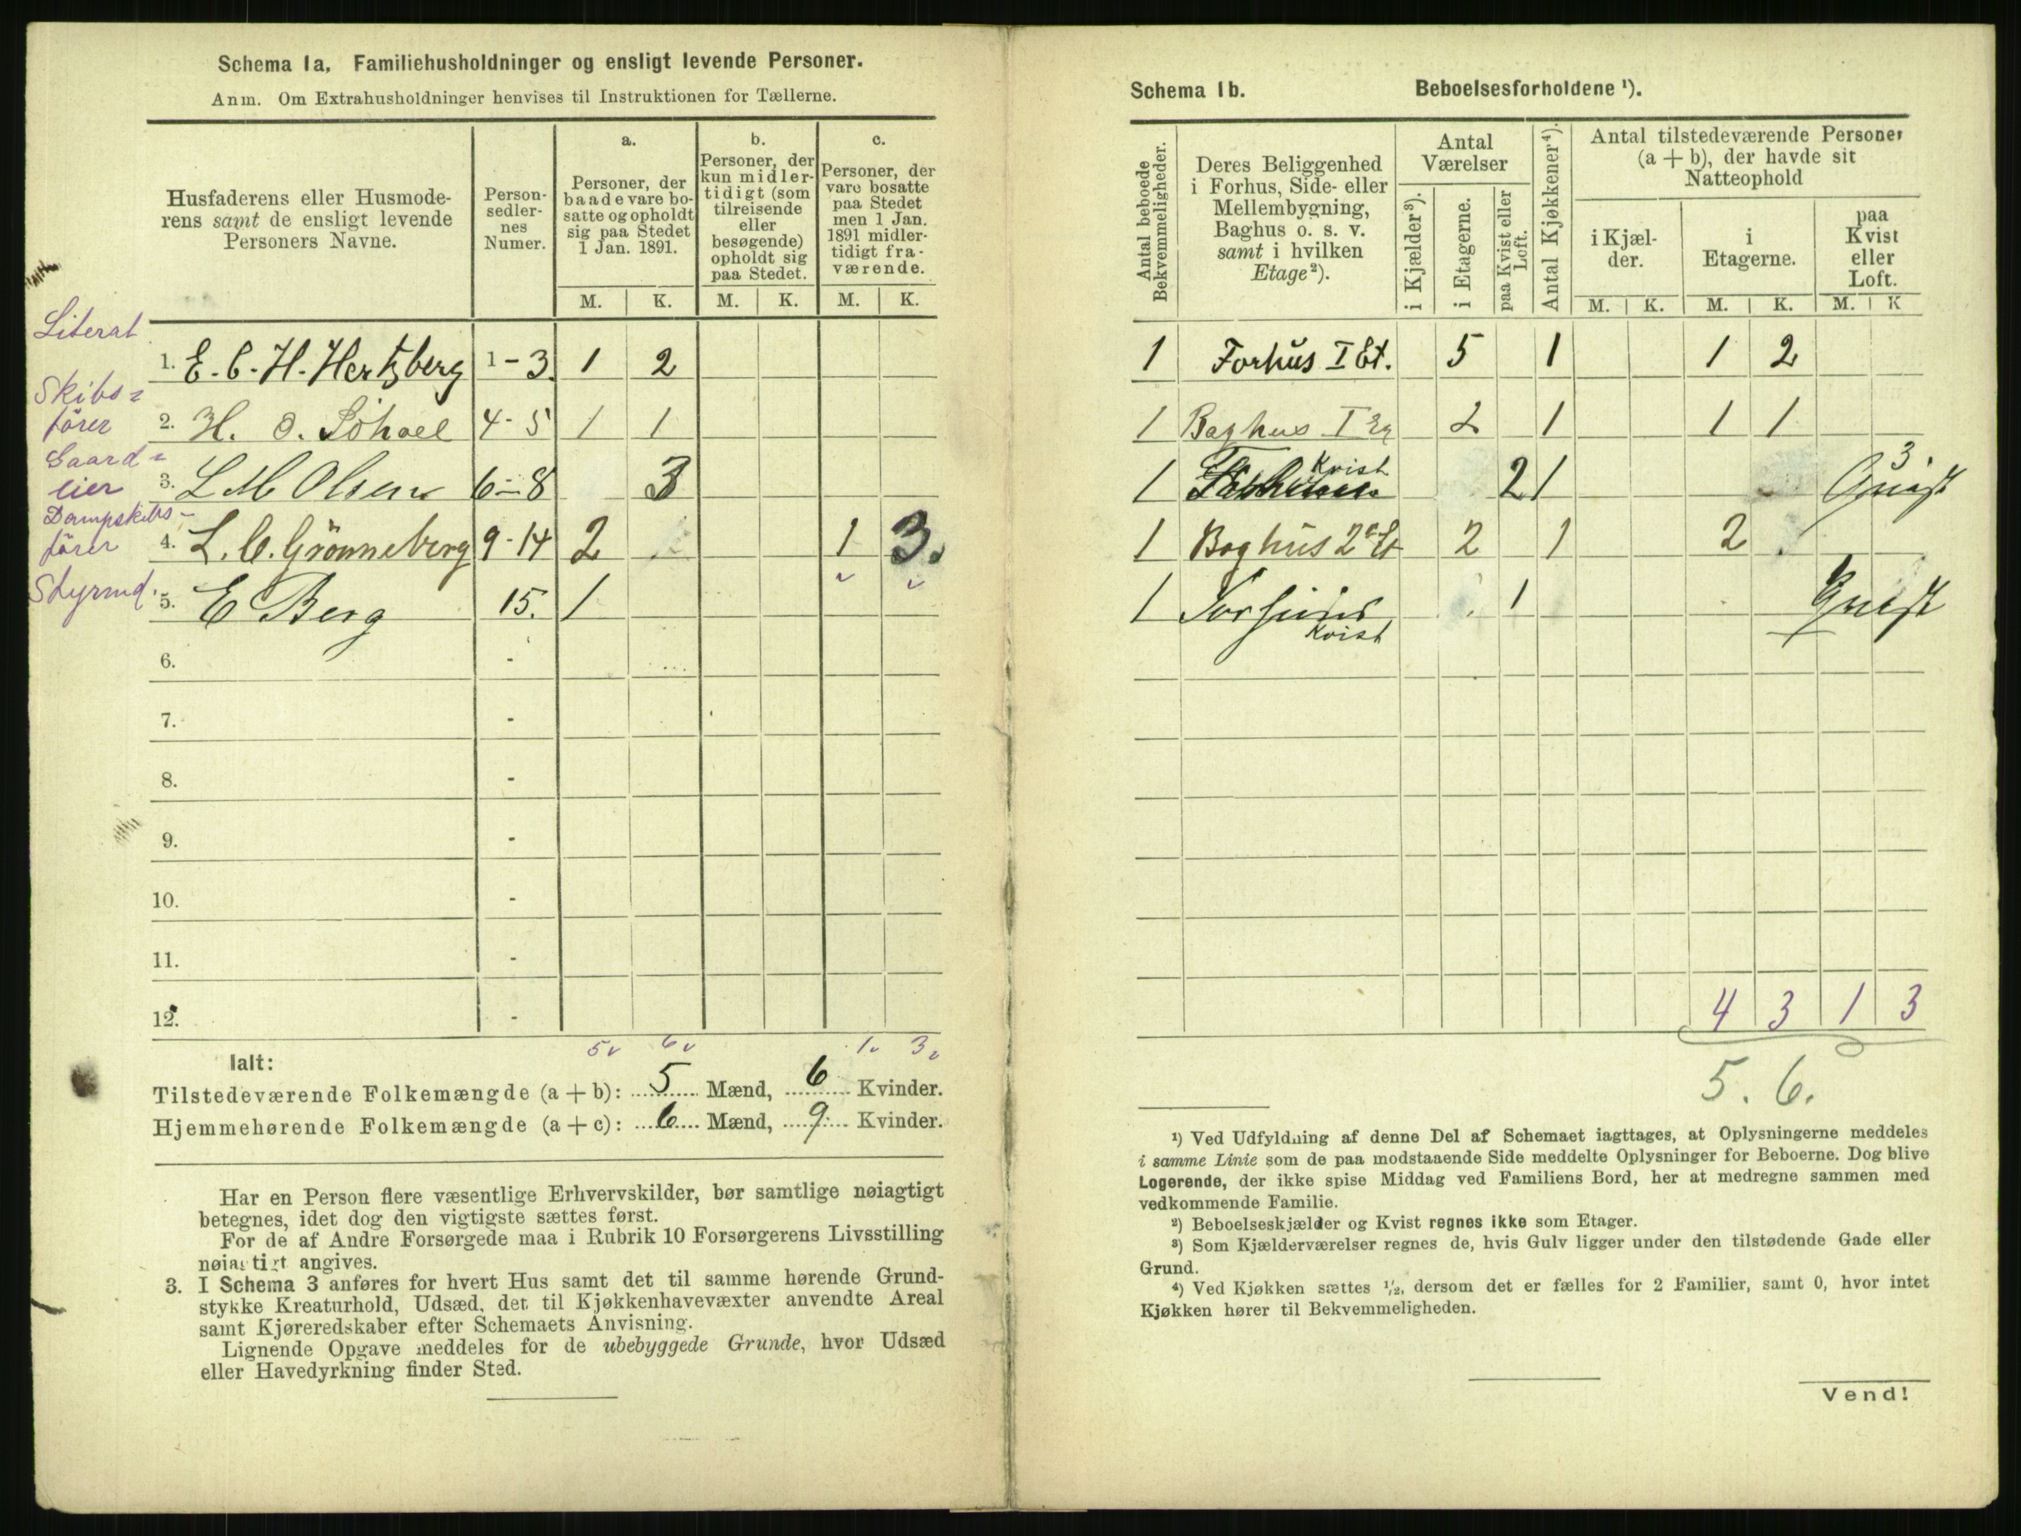 Schema 1a. Familiehusholdninger og ensligt levende Personer.
Anm. Om Extrahusholdninger henvises til Instruktionen for Tællerne.
Husfaderens eller Husmoderens samt de ensligt levende Personers Navne.
Personsedlernes Numer.
a.
Personer, der baade vare bosatte og opholdt sig paa Stedet 1 Jan. 1891.
b.
Personer, der kun midlertidigt (som tilreisende eller besøgende) opholdt sig paa Stedet.
c.
Personer, der vare bosatte paa Stedet men 1 Jan. 1891 midlertidigt fraværende.
M. K. M. K. M. K.
Literat 1. E. C. H. Hertzberg 1-3. 1 2
Skibsfører 2. H. O. 4-5 1 1
Gaardeier 3. L M Olsen 6-8 3
Dampskibsfører 4. L. C. Grönneberg 9-14 2 1 3.
Styrmd. 5. E Berg 15. 1
6. -
7. -
8. -
9. -
10. -
11. -
12. -
5 6 1 3
Ialt:
Tilstedeværende Folkemængde (a + b): 5 Mænd, 6 Kvinder.
Hjemmehørende Folkemængde (a + c): 6 Mænd, 9 Kvinder.
Har en Person flere væsentlige Erhvervskilder, bør samtlige nøiagtigt
betegnes, idet dog den vigtigste sættes først.
For de af Andre Forsørgede maa i Rubrik 10 Forsørgerens Livsstilling
nøiagtigt angives.
3. I Schema 3 anføres for hvert Hus samt det til samme hørende Grund-
stykke Kreaturhold, Udsæd, det til Kjøkkenhavevæxter anvendte Areal
samt Kjøreredskaber efter Schemaets Anvisning.
Lignende Opgave meddeles for de ubebyggede Grunde, hvor Udsæd
eller Havedyrkning finder Sted.
Schema 1b. Beboelsesforholdene ¹).
Antal beboede Bekvemmeligheder.
Deres Beliggenhed i Forhus, Side- eller Mellembygning, Baghus o. s. v. samt i hvilken Etage ²).
Antal Værelser
i Kjælder ³).
i Etagerne.
paa Kvist eller Loft.
Antal Kjøkkener ⁴).
Antal tilstedeværende Personer (a + b), der havde sit Natteophold
i Kjælder.
i Etagerne.
paa Kvist eller Loft.
M. K. M. K. M. K
1 Forhus I Et. 5 1 1 2
1 Baghus I Et 2 1 1 1
1 Kvist 2 1 3 Quist
1 Baghus 2 Et 2 1 2
1 Forhuus Kvist 1 Quist
4 3 1 3
5. 6.
¹) Ved Udfyldning af denne Del af Schemaet iagttages, at Oplysningerne meddeles
i samme Linie som de paa modstaaende Side meddelte Oplysninger for Beboerne. Dog blive
Logerende, der ikke spise Middag ved Familiens Bord, her at medregne sammen med
vedkommende Familie.
²) Beboelseskjælder og Kvist regnes ikke som Etager.
³) Som Kjælderværelser regnes de, hvis Gulv ligger under den tilstødende Gade eller
Grund.
⁴) Ved Kjøkken sættes ¹/₂, dersom det er fælles for 2 Familier, samt 0, hvor intet
Kjøkken hører til Bekvemmeligheden.
Vend!